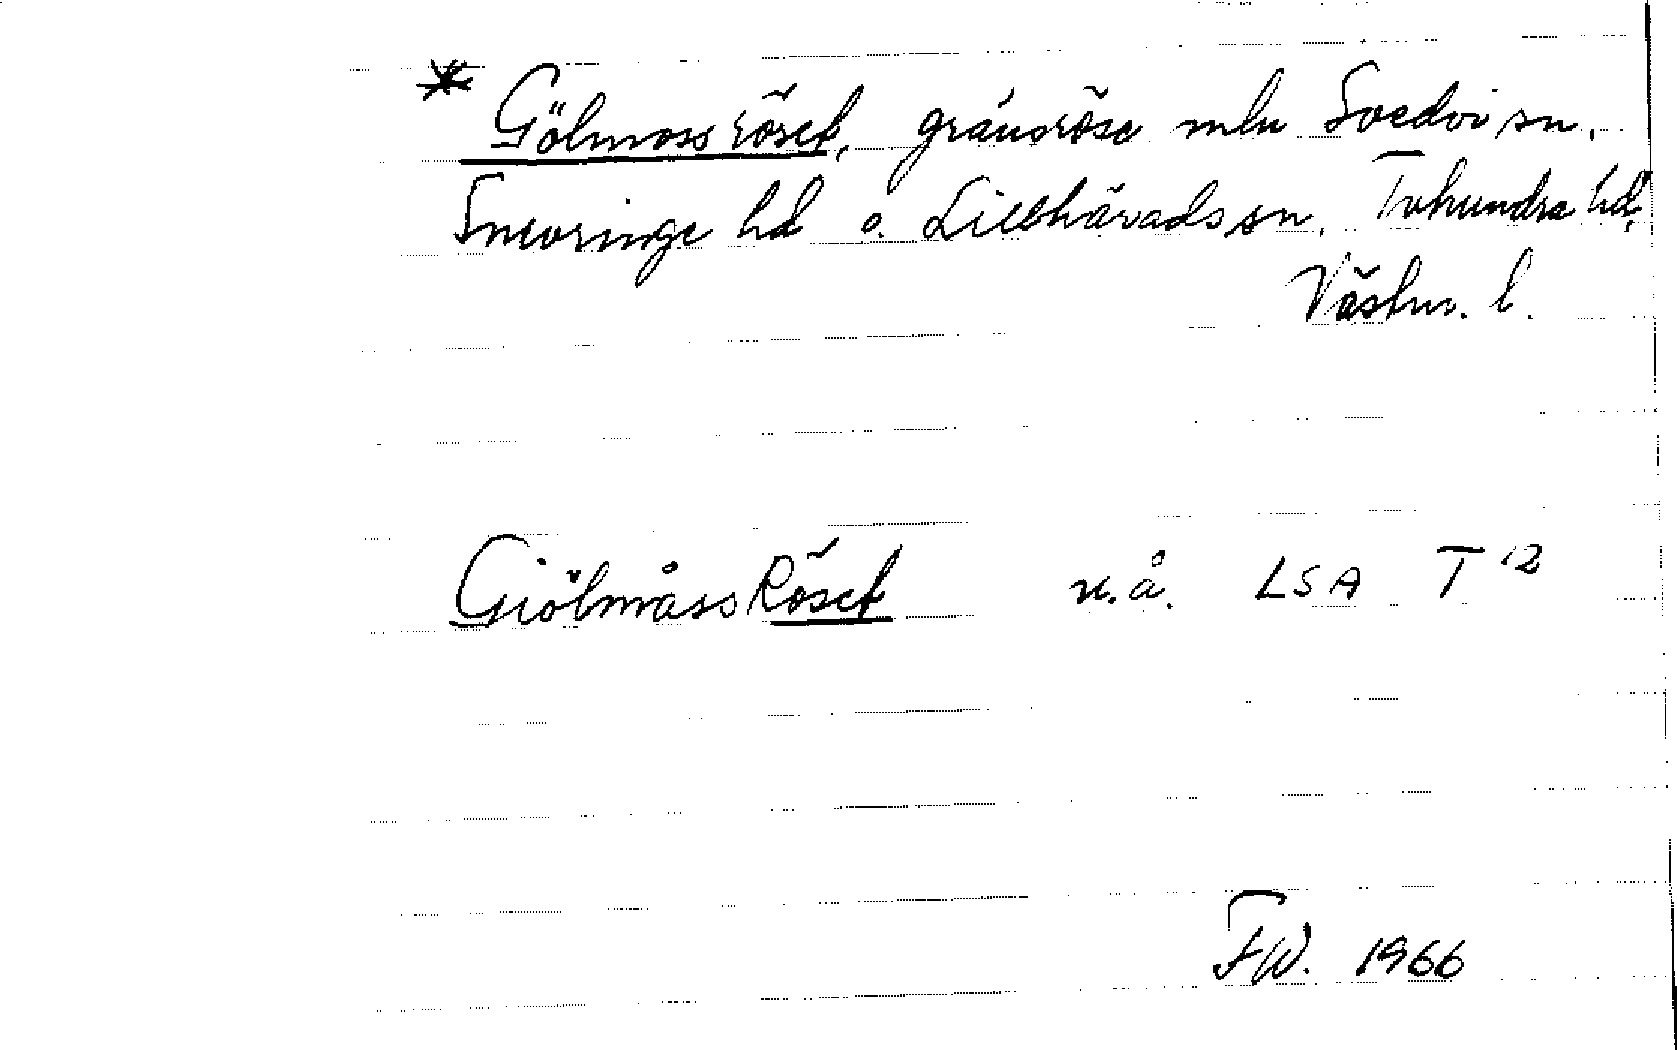 * Gölmossröset, gränsröse mln Svedvi sn,
Snevringe hd o. Lillhärads sn, Tuhundra hd,
Västm. l.
Giölmåss Röset u.å. LSA T 12
FW. 1966